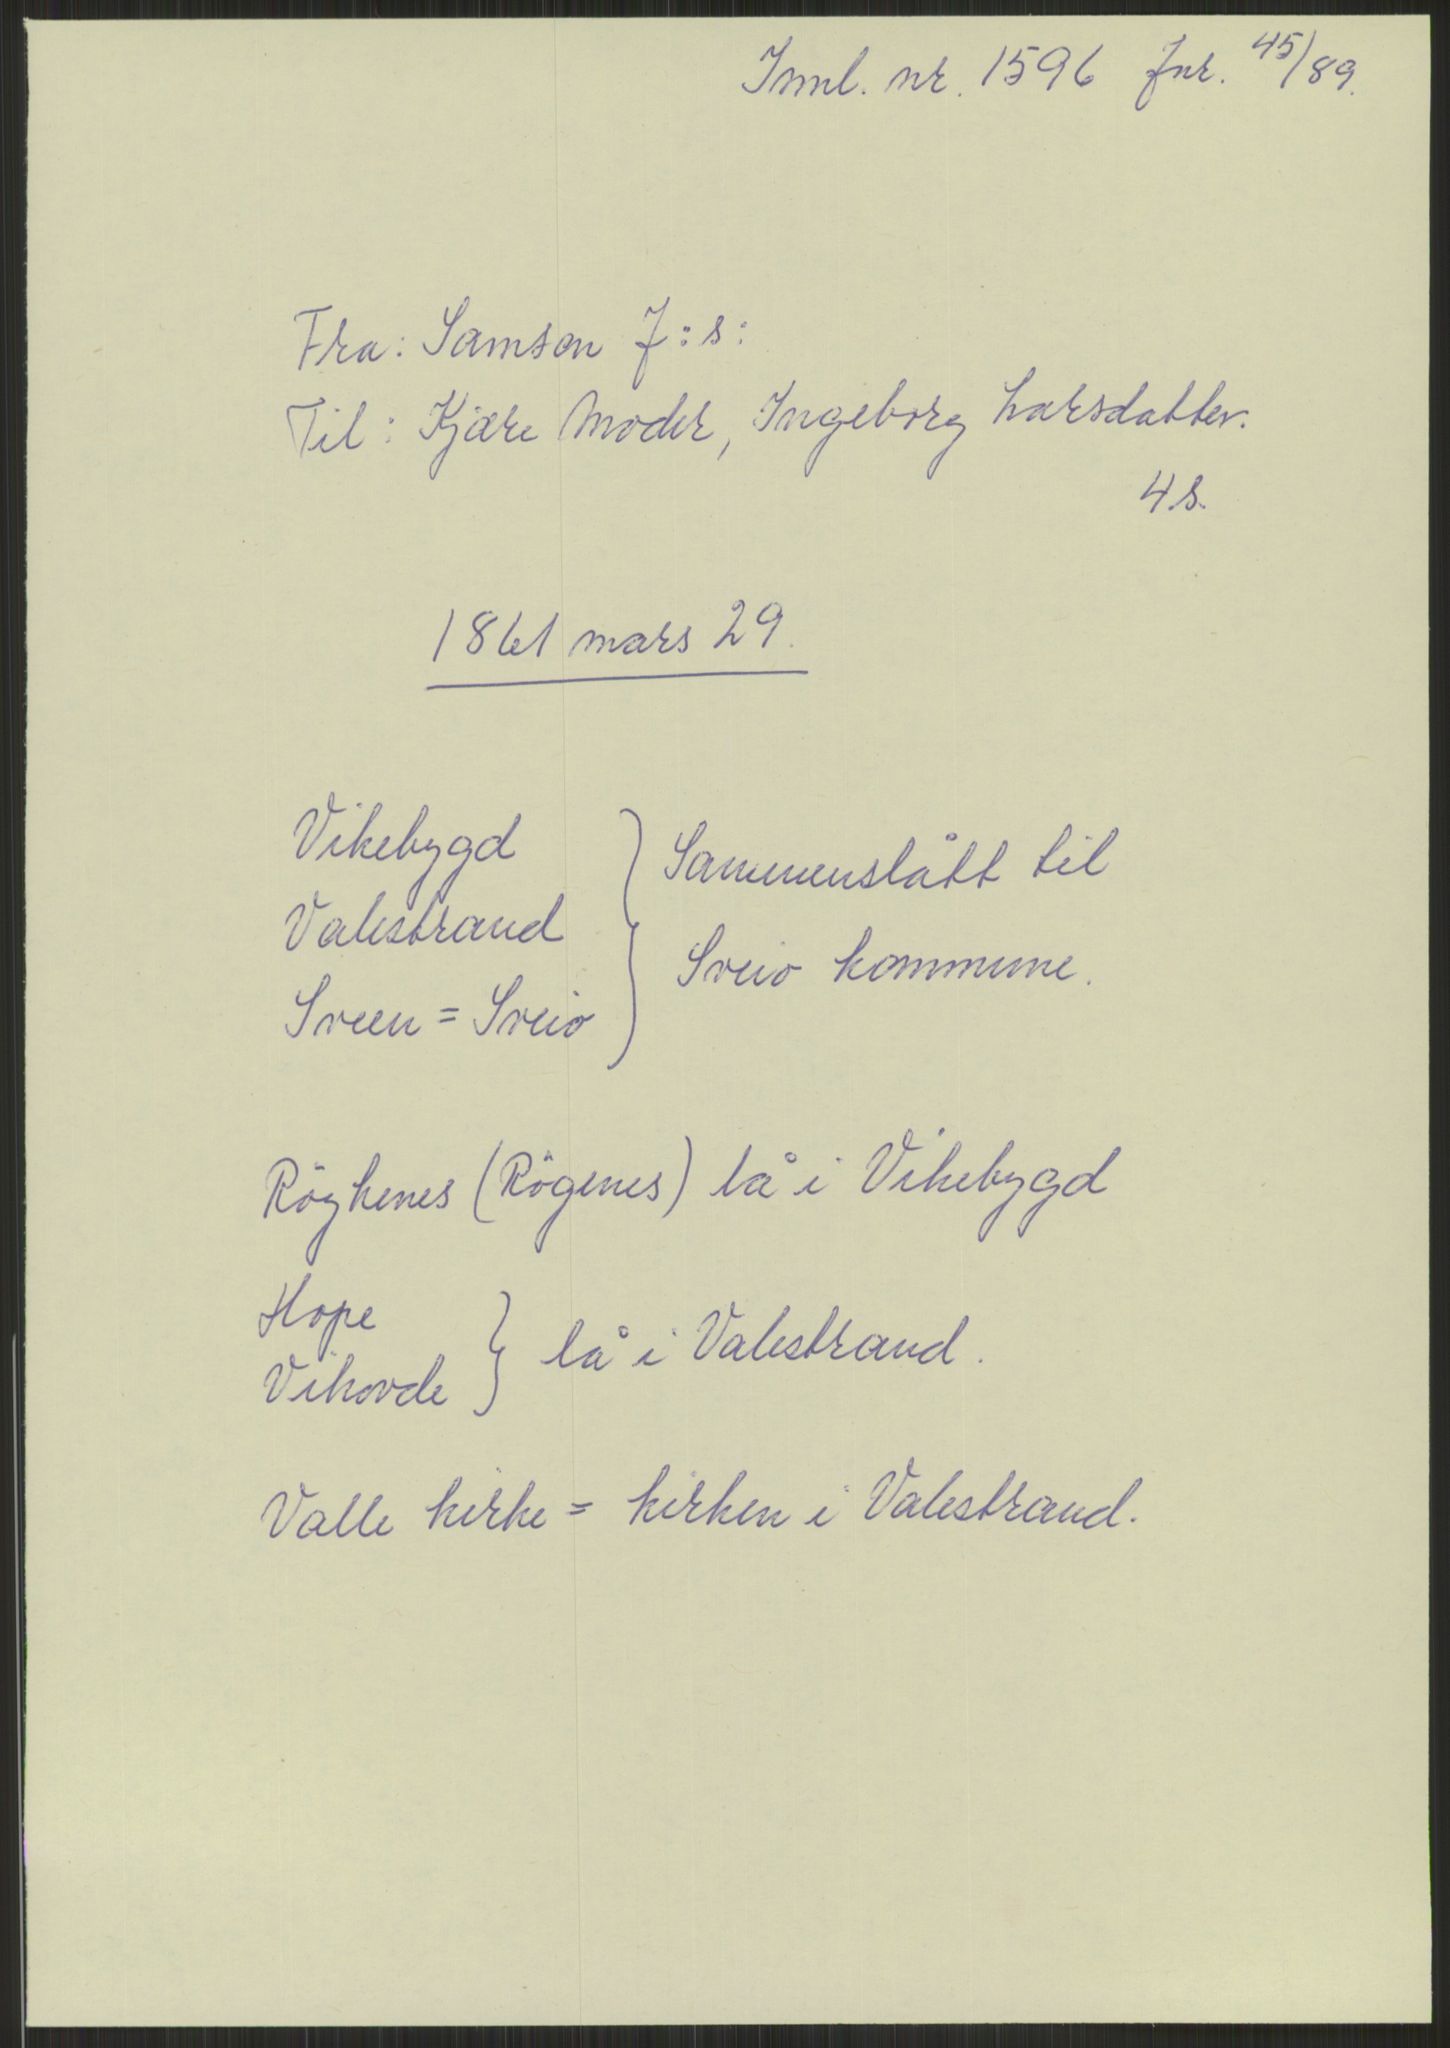 Inml. nr. 1596 Jnr. 45/89.
Fra: Samson J:s:
Til: Kjære Moder, Ingeborg Larsdatter.
4 s.
1861 mars 29.
Vikebygd
Valestrand
Sveen = Sveio
} Sammenslått til
Sveio kommune.
Röykenes (Rögenes) lå i Vikebygd
Hope
Vikovde
} lå i Valestrand.
Valle kirke = kirken i Valestrand.